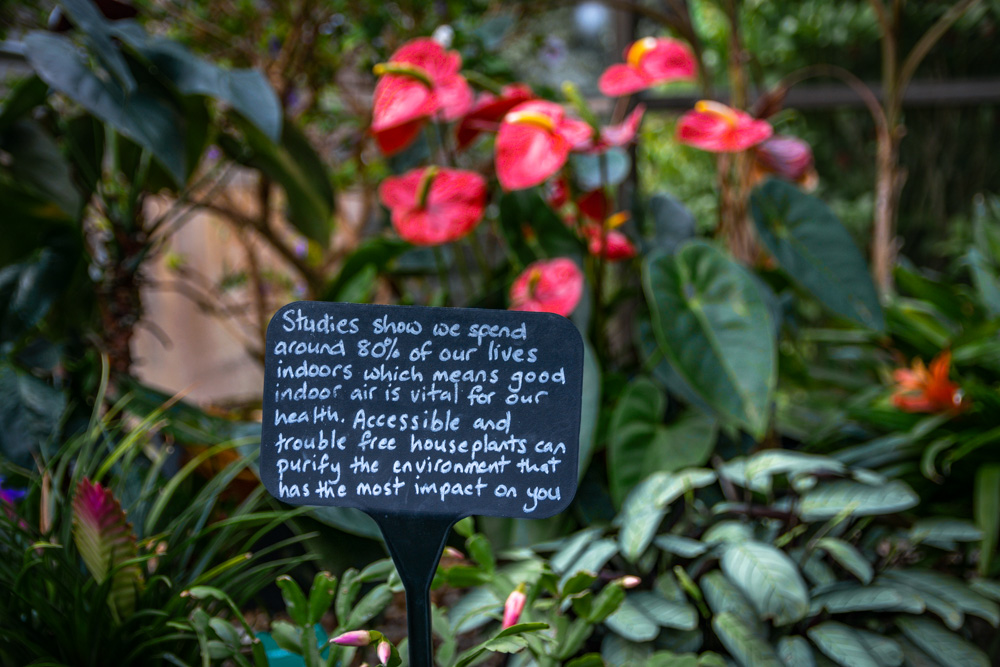 Studies show we spend
around 80% of our lives
indoors which means good
indoor air is vital for our
health. Accessible and
trouble free houseplants can
purify the environment that
has the most impact on you